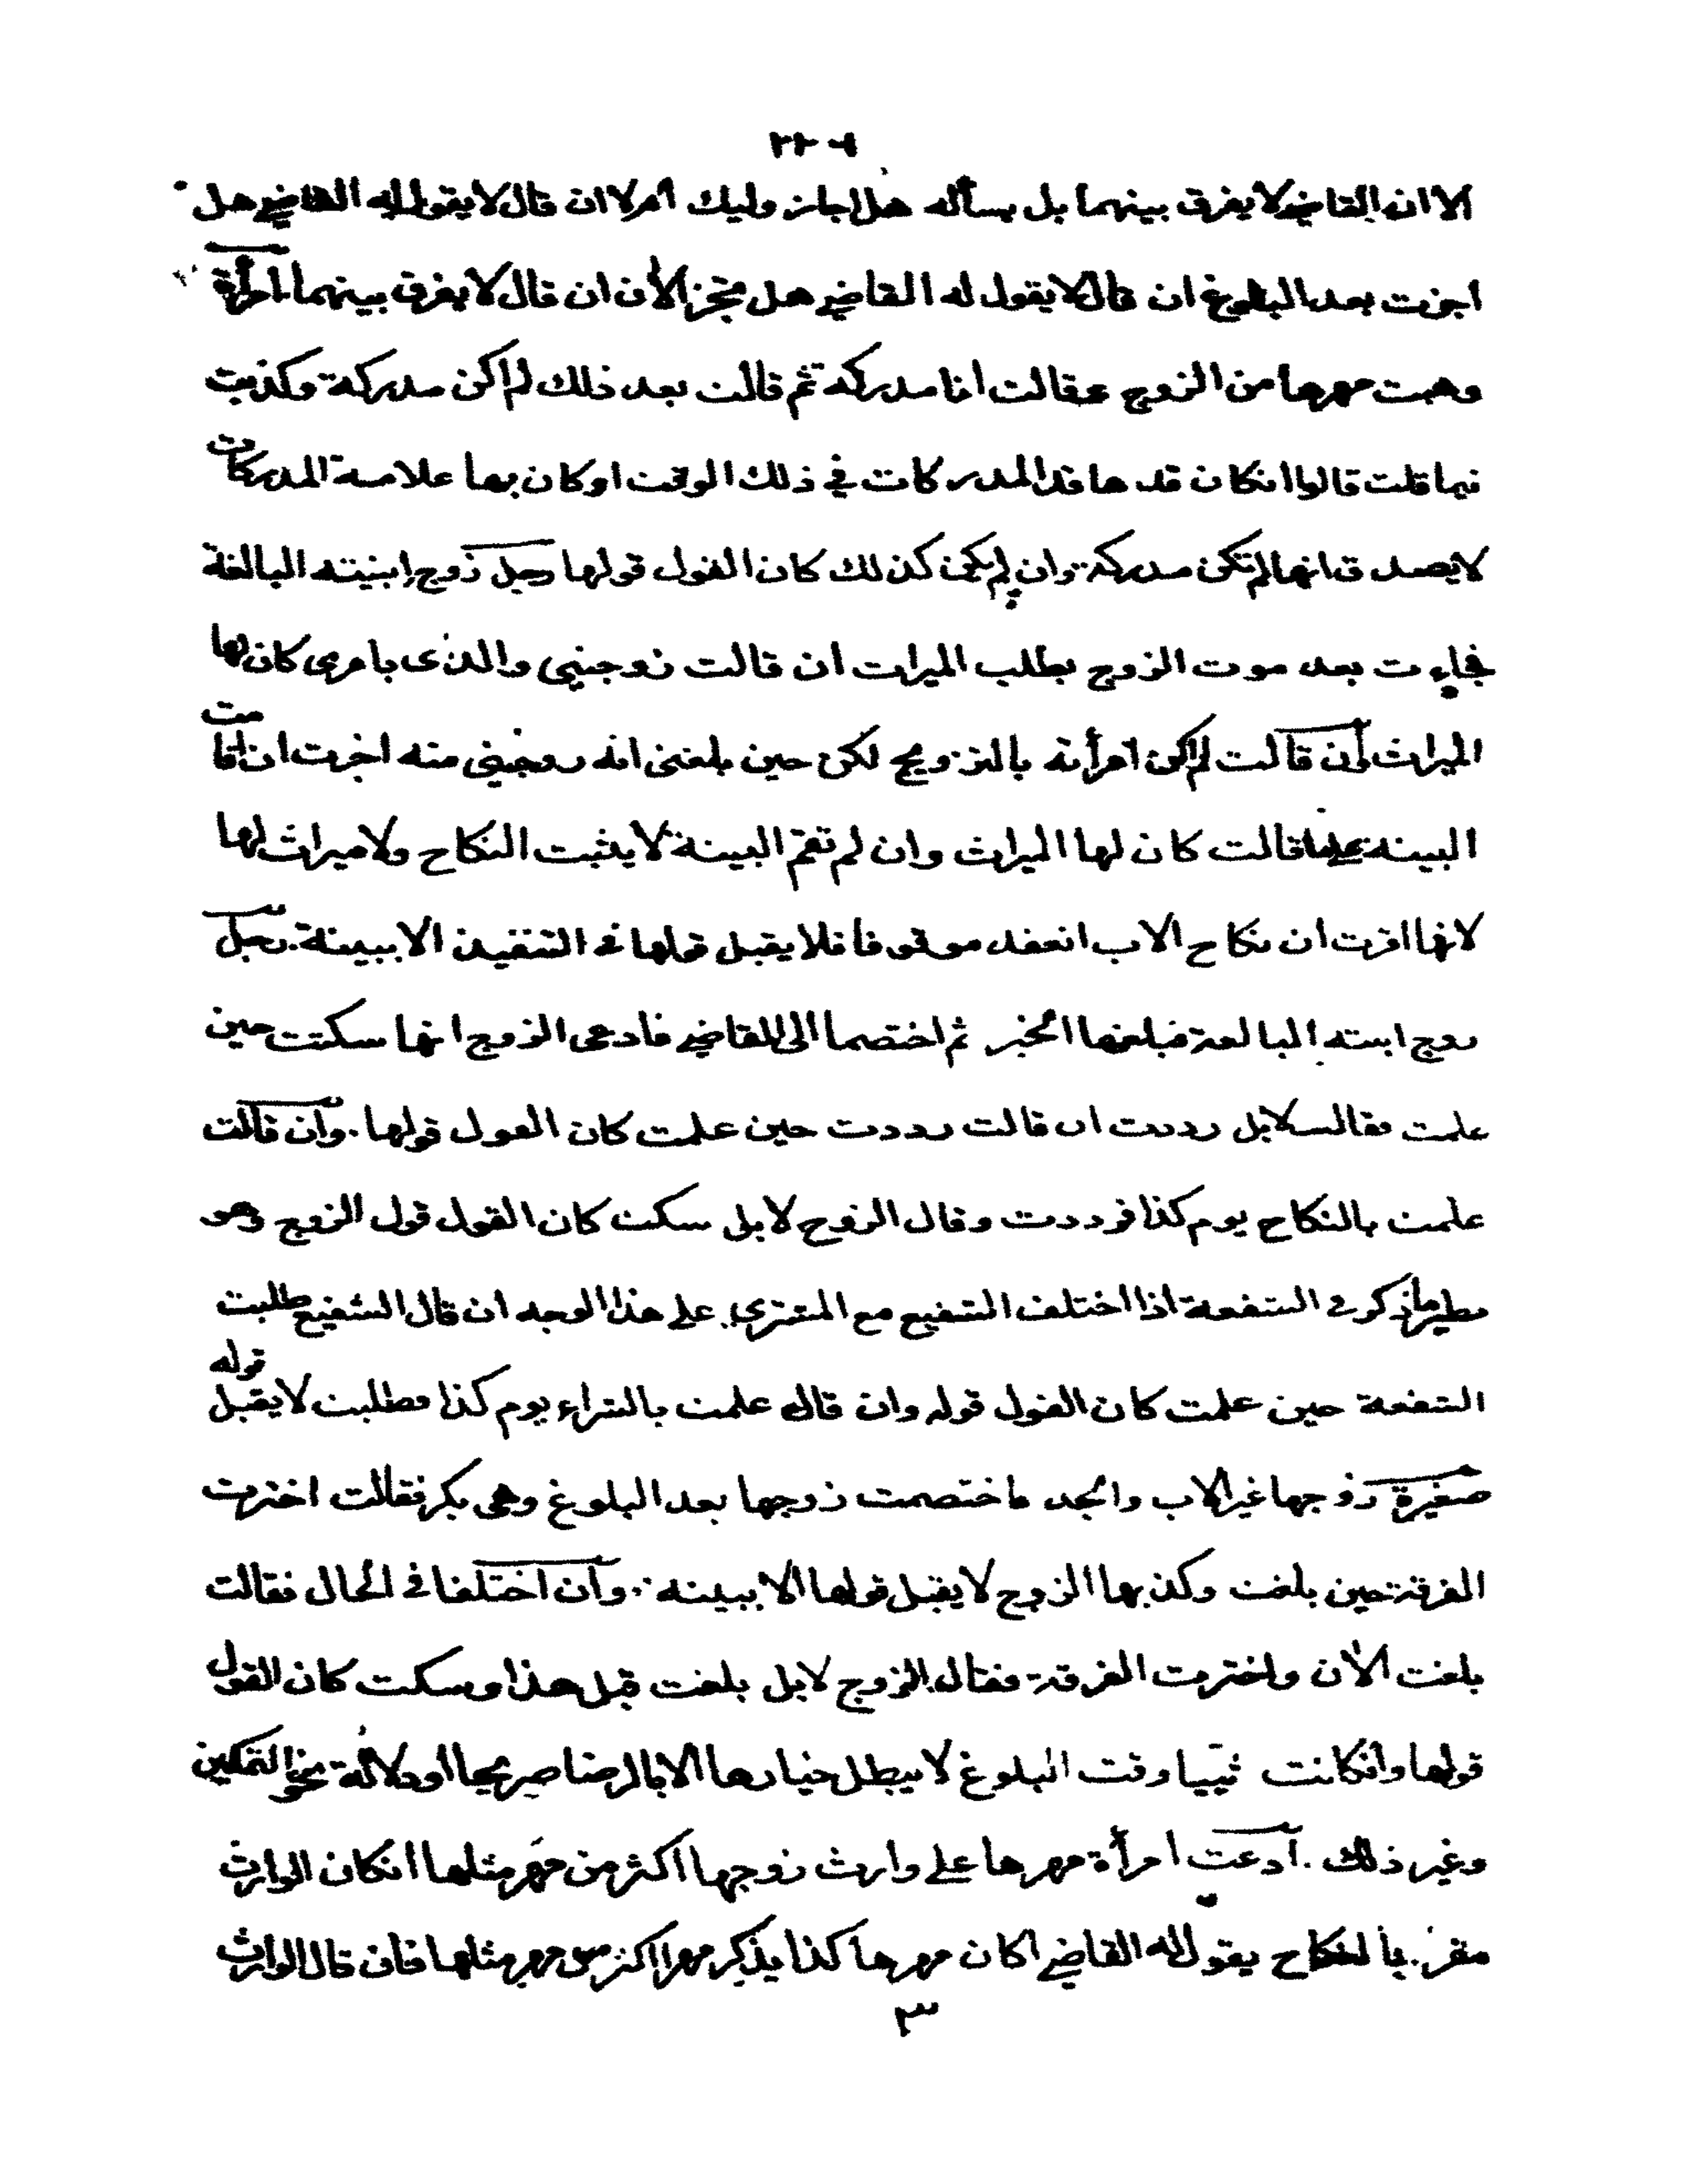 الا ان القاضي لا يفرق بينهما بل يسأله هل اجاز وليك ام لا ان قال لا يقول له القاضي هل
اجزت بعد البلوغ ان قال لا يقول له القاضي هل تجيز الأن ان قال لا يفرق بينهما امرأة
وهبت مهرها من الزوج وقالت انا مدركة ثم قالت بعد ذلك لم اكن مدركة وكذبت
فيما قلت قالوا انكان قدها قد المدركات في ذلك الوقت او كان بها علامة المدركات
لا يصدق انها لم تكن مدركة وان لم يكن كذلك كان القول قولها رجل زوج ابنته البالغة
فجاءت بعد موت الزوج بطلب الميراث ان قالت زوجنيي والدى بامرى كان لها
الميراث وان قالت لم اكن امرأته بالتزويج لكن حين بلغنى انه زوجني منه اجزت ان اقامت
البينة على ما قالت كان لها الميراث وان لم تقم البينة لا يثبت النكاح ولا ميراث لها
لانها اقرت ان نكاح الاب انعقد موقوفا فلا يقبل قولها في التنفيذ الا ببينة. رجل
زوج ابنته البالغة فبلغها الخبر ثم اختصما الى القاضي فادعى الزوج انها سكتت حين
علمت فقالت لا بل رددت ان قالت رددت حين علمت كان القول قولها. وان قالت
علمت بالنكاح يوم كذا فرددت وقال الزوج لا بل سكت كان القول قول الزوج وهو
نظير ما ذكر في الشفعة اذا اختلف الشفيع مع المشتري على هذا الوجه ان قال الشفيع طلبت
الشفعة حين علمت كان القول قوله وان قال علمت بالشراء يوم كذا وطلبت لا يقبل قوله
صغيرة زوجها غير الاب والجد فاختصمت زوجها بعد البلوغ وهى بكر فقالت اخترت
الفرقة حين بلغت وكذبها الزوج لا يقبل قولها الا ببينه. وان اختلفا في الحال فقالت
بلغت الأن واخترت الفرقة فقال الزوج لا بل بلغت قبل هذا وسكت كان القول
قولها وانكانت ثيبا وقت البلوغ لا يبطل خيارها الا بالرضا صريحا او دلالة نحو التمكين
وغير ذلك. ادعت امرأة مهرها على وارث زوجها اكثر من مهر مثلها انكان الوارث
مقرا بالنكاح يقول له القاضي اكان مهرها كذا يذكر مهرا اكثر من مهر مثلها فان قال الوارث
٣